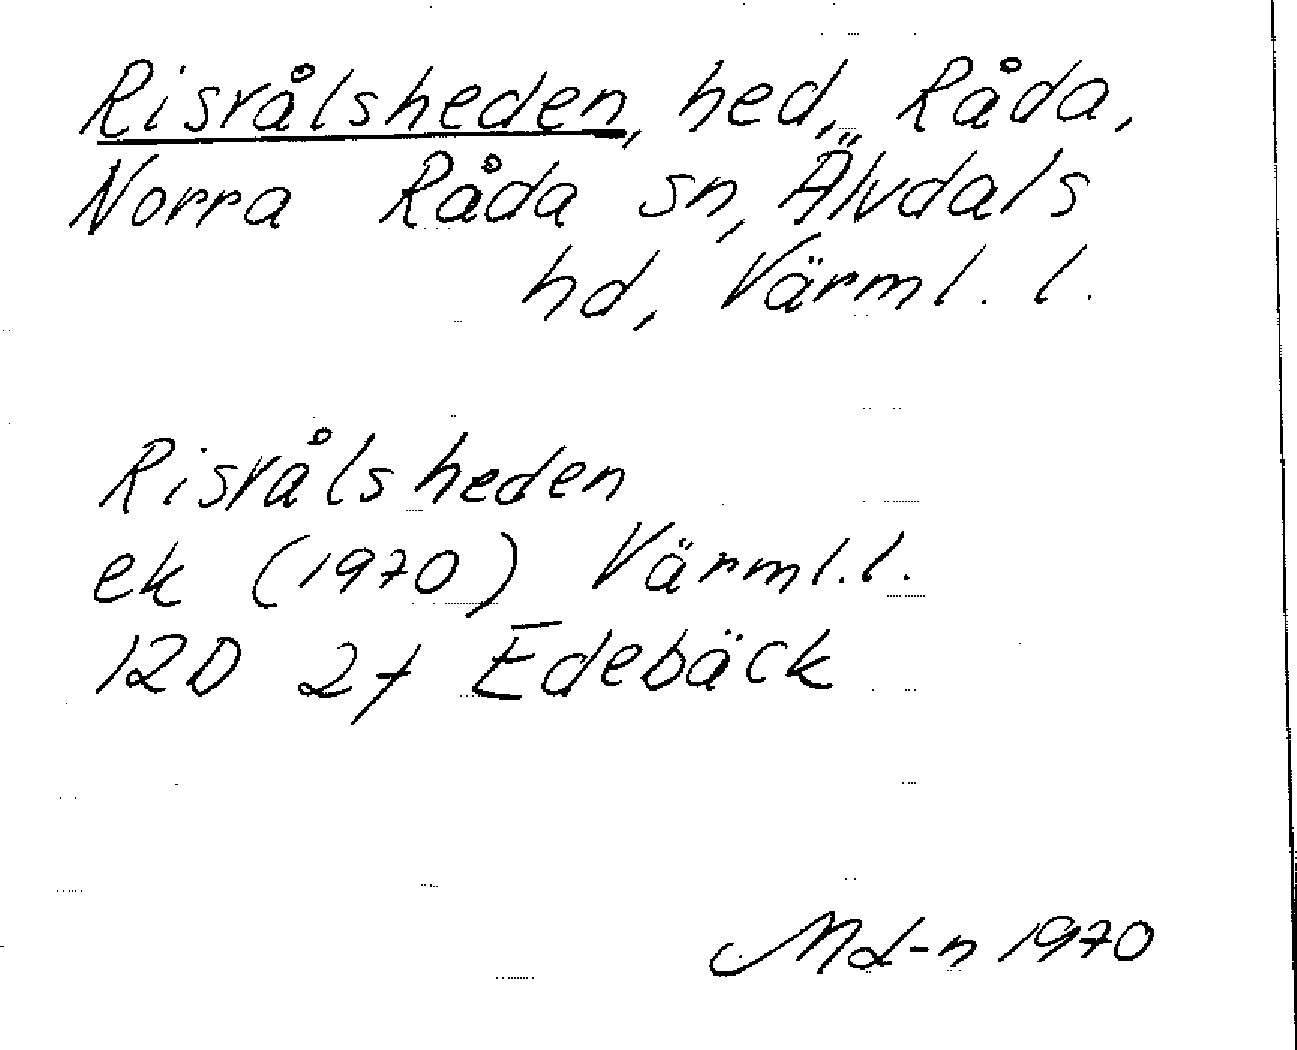 Risvålsheden, hed, Råda,
Norra Råda sn, Älvdals
hd, Värml. l.
Risvålsheden
ek (1970) Värml.l.
12D 2f Edebäck
Md-n 1970